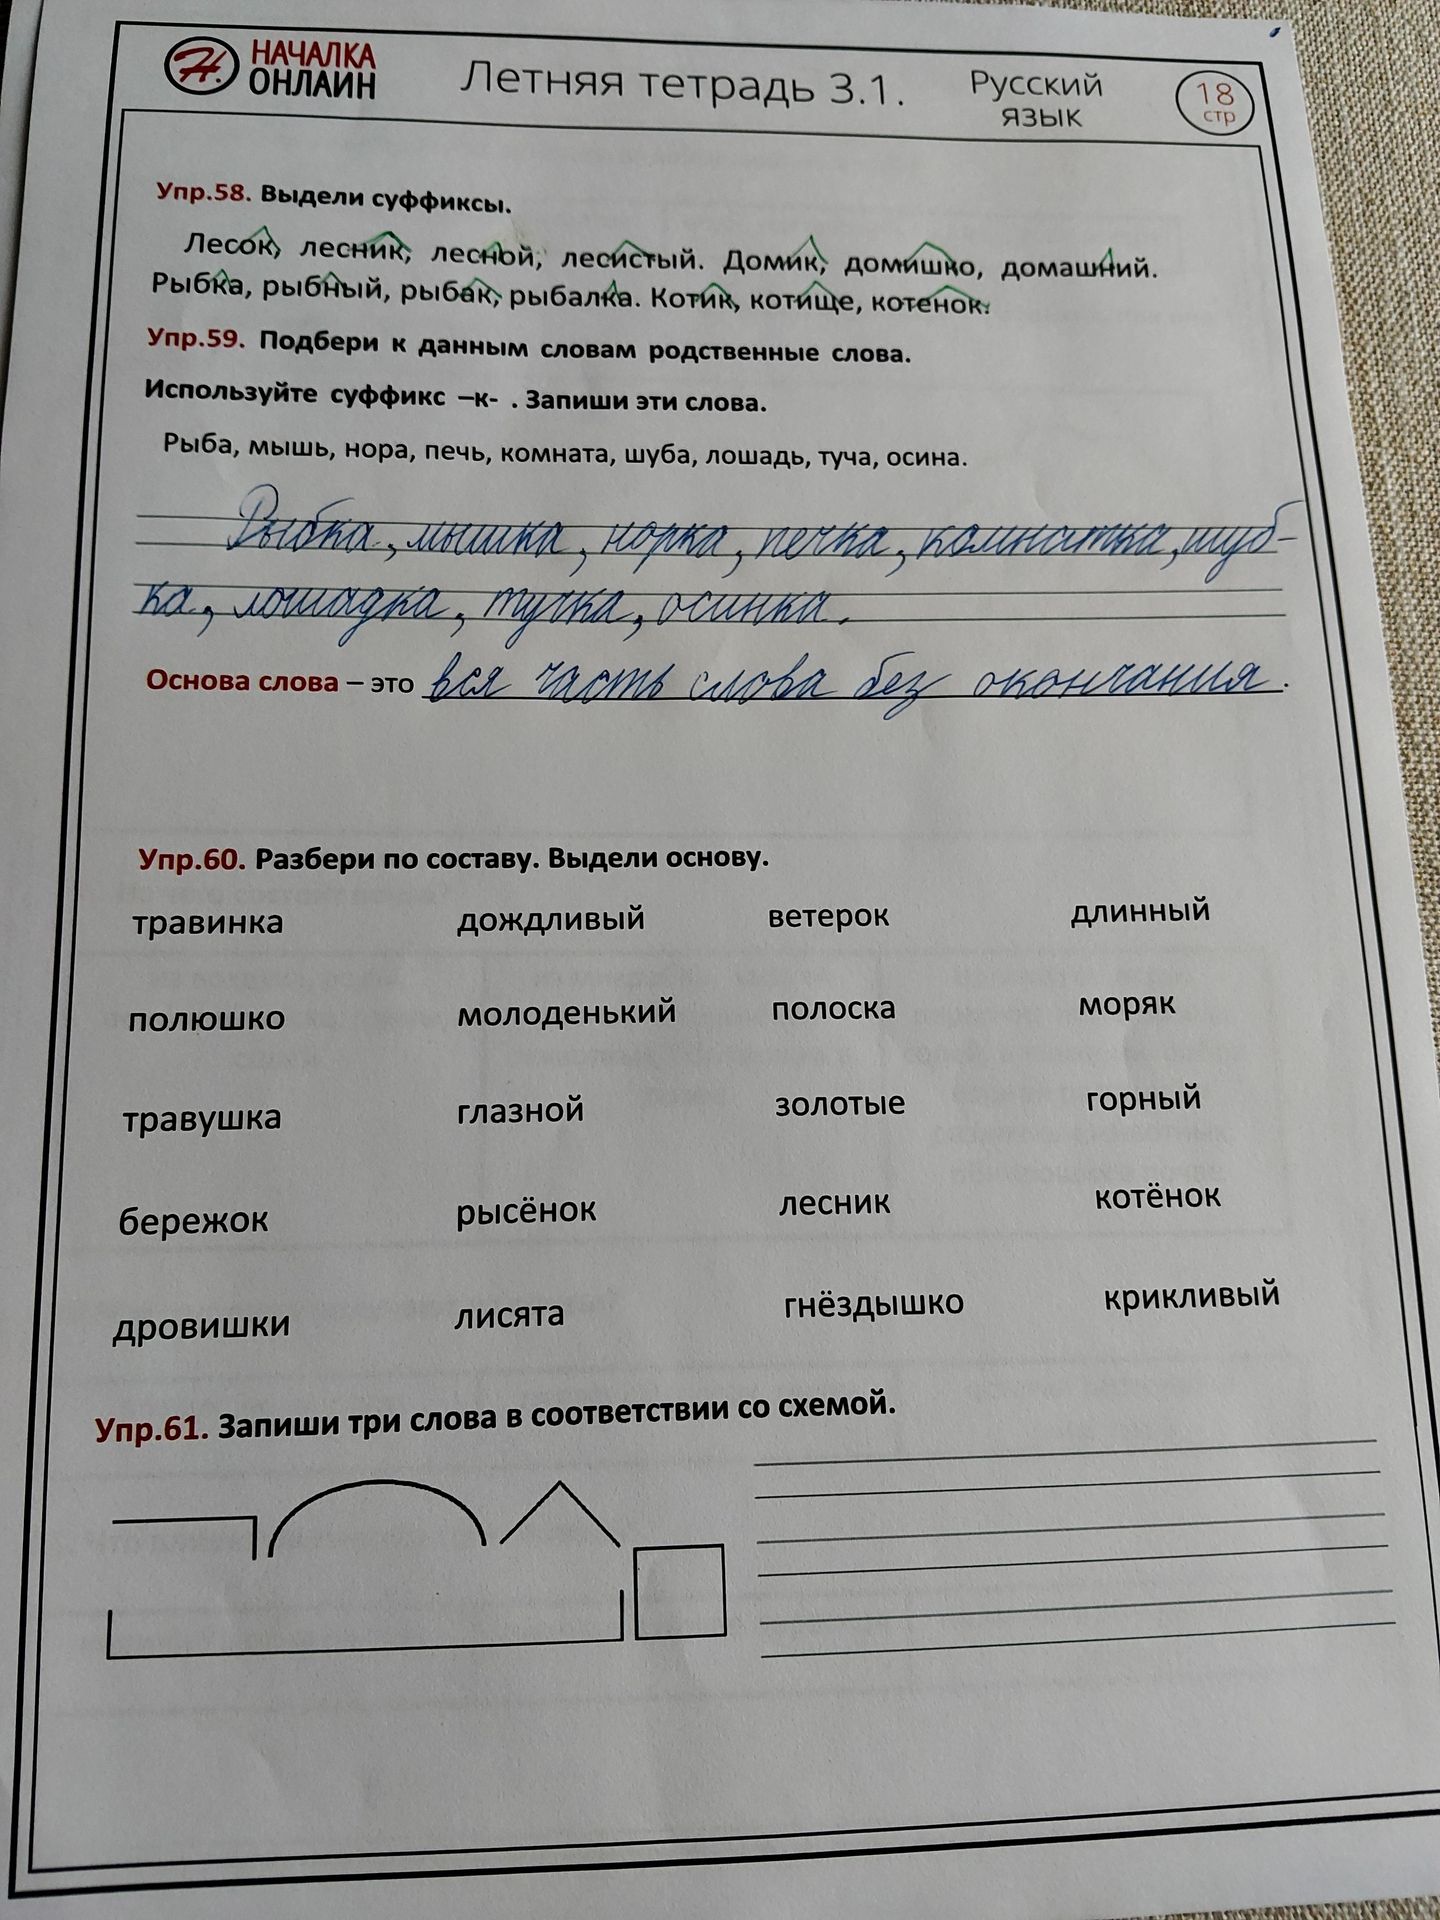 НАЧАЛКА
ОНЛАЙН
Летняя тетрадь 3.1.
Русский
язык
18
стр
Упр.58. Выдели суффиксы.
Лесок, лесник, лесной, лесистый. Домик, домишко, домашний.
Рыбка, рыбный, рыбак, рыбалка. Котик, котище, котенок.
Упр.59. Подбери к данным словам родственные слова.
Используйте суффикс –к- . Запиши эти слова.
Рыба, мышь, нора, печь, комната, шуба, лошадь, туча, осина.
Рыбка, мышка, норка, печка, комнатка, шуб-
ка, лошадка, тучка, осинка.
Основа слова – это вся часть слова без окончания.
Упр.60. Разбери по составу. Выдели основу.
травинка дождливый ветерок длинный
полюшко молоденький полоска моряк
травушка глазной золотые горный
бережок рысёнок лесник котёнок
дровишки лисята гнёздышко крикливый
Упр.61. Запиши три слова в соответствии со схемой.